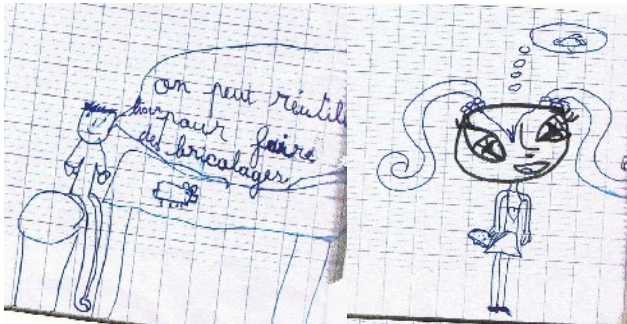 on peut réutil
pour faire
des bricolages